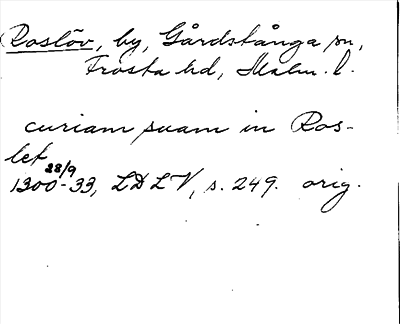 (Roslöv, by, Gårdstånga sn,
Frosta hd, Malm. l.
curiam suam in Ros-
lef
28/9
1300-33, LDLV, s. 249. orig.